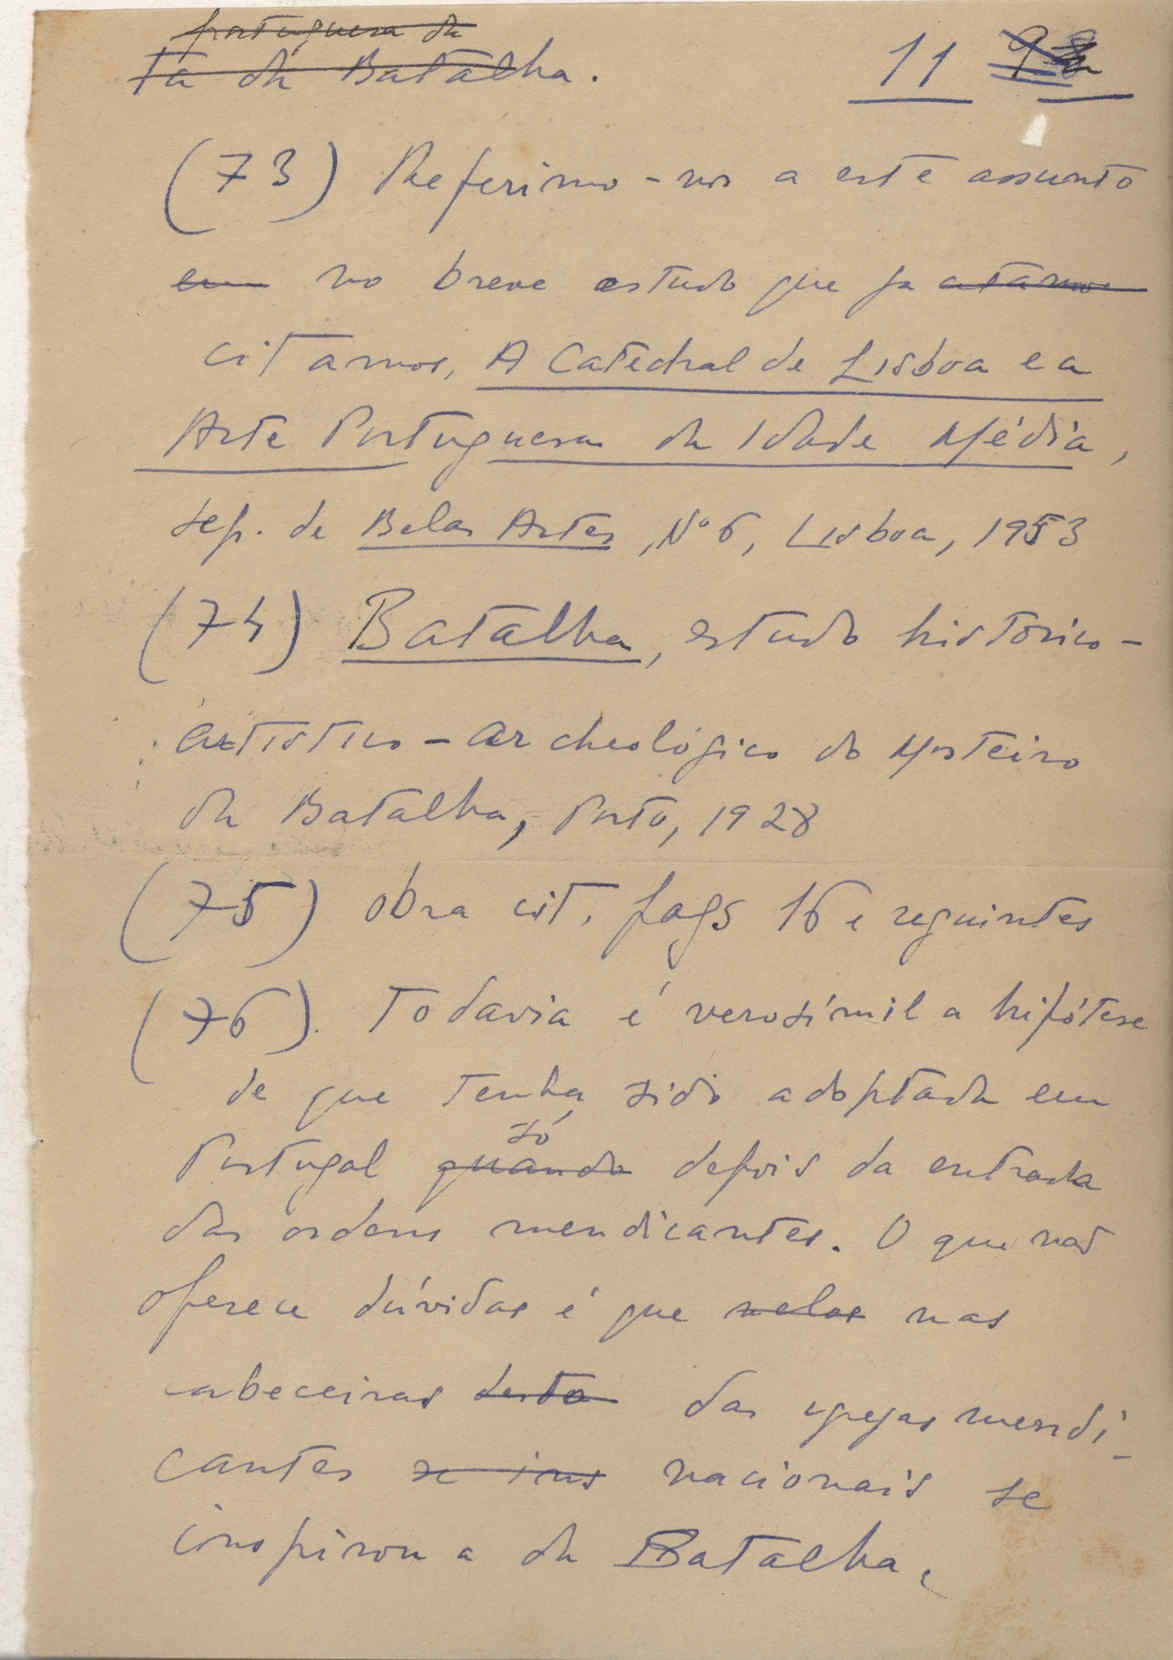 portuguesa da
ta da Batalha.
11
(73) Referimo-nos a este assunto
em no breve estudo que já citamos
citamos, A Catedral de Lisboa e a
Arte Portuguesa da Idade Média,
sep. de Belas Artes, Nº 6, Lisboa, 1953
(74) Batalha, estudo histórico-
artistico-archeológico do Mosteiro
da Batalha, Porto, 1928
(75) obra cit. pags 16 e seguintes
(76). Todavia é verosímil a hipótese
de que tenha sido adoptada em
só
Portugal quando depois da entrada
das ordens mendicantes. O que não
oferece dúvidas é que nelas nas
cabeceiras desta das igrejas mendi-
cantes se ins nacionais se
inspirou a da Batalha.